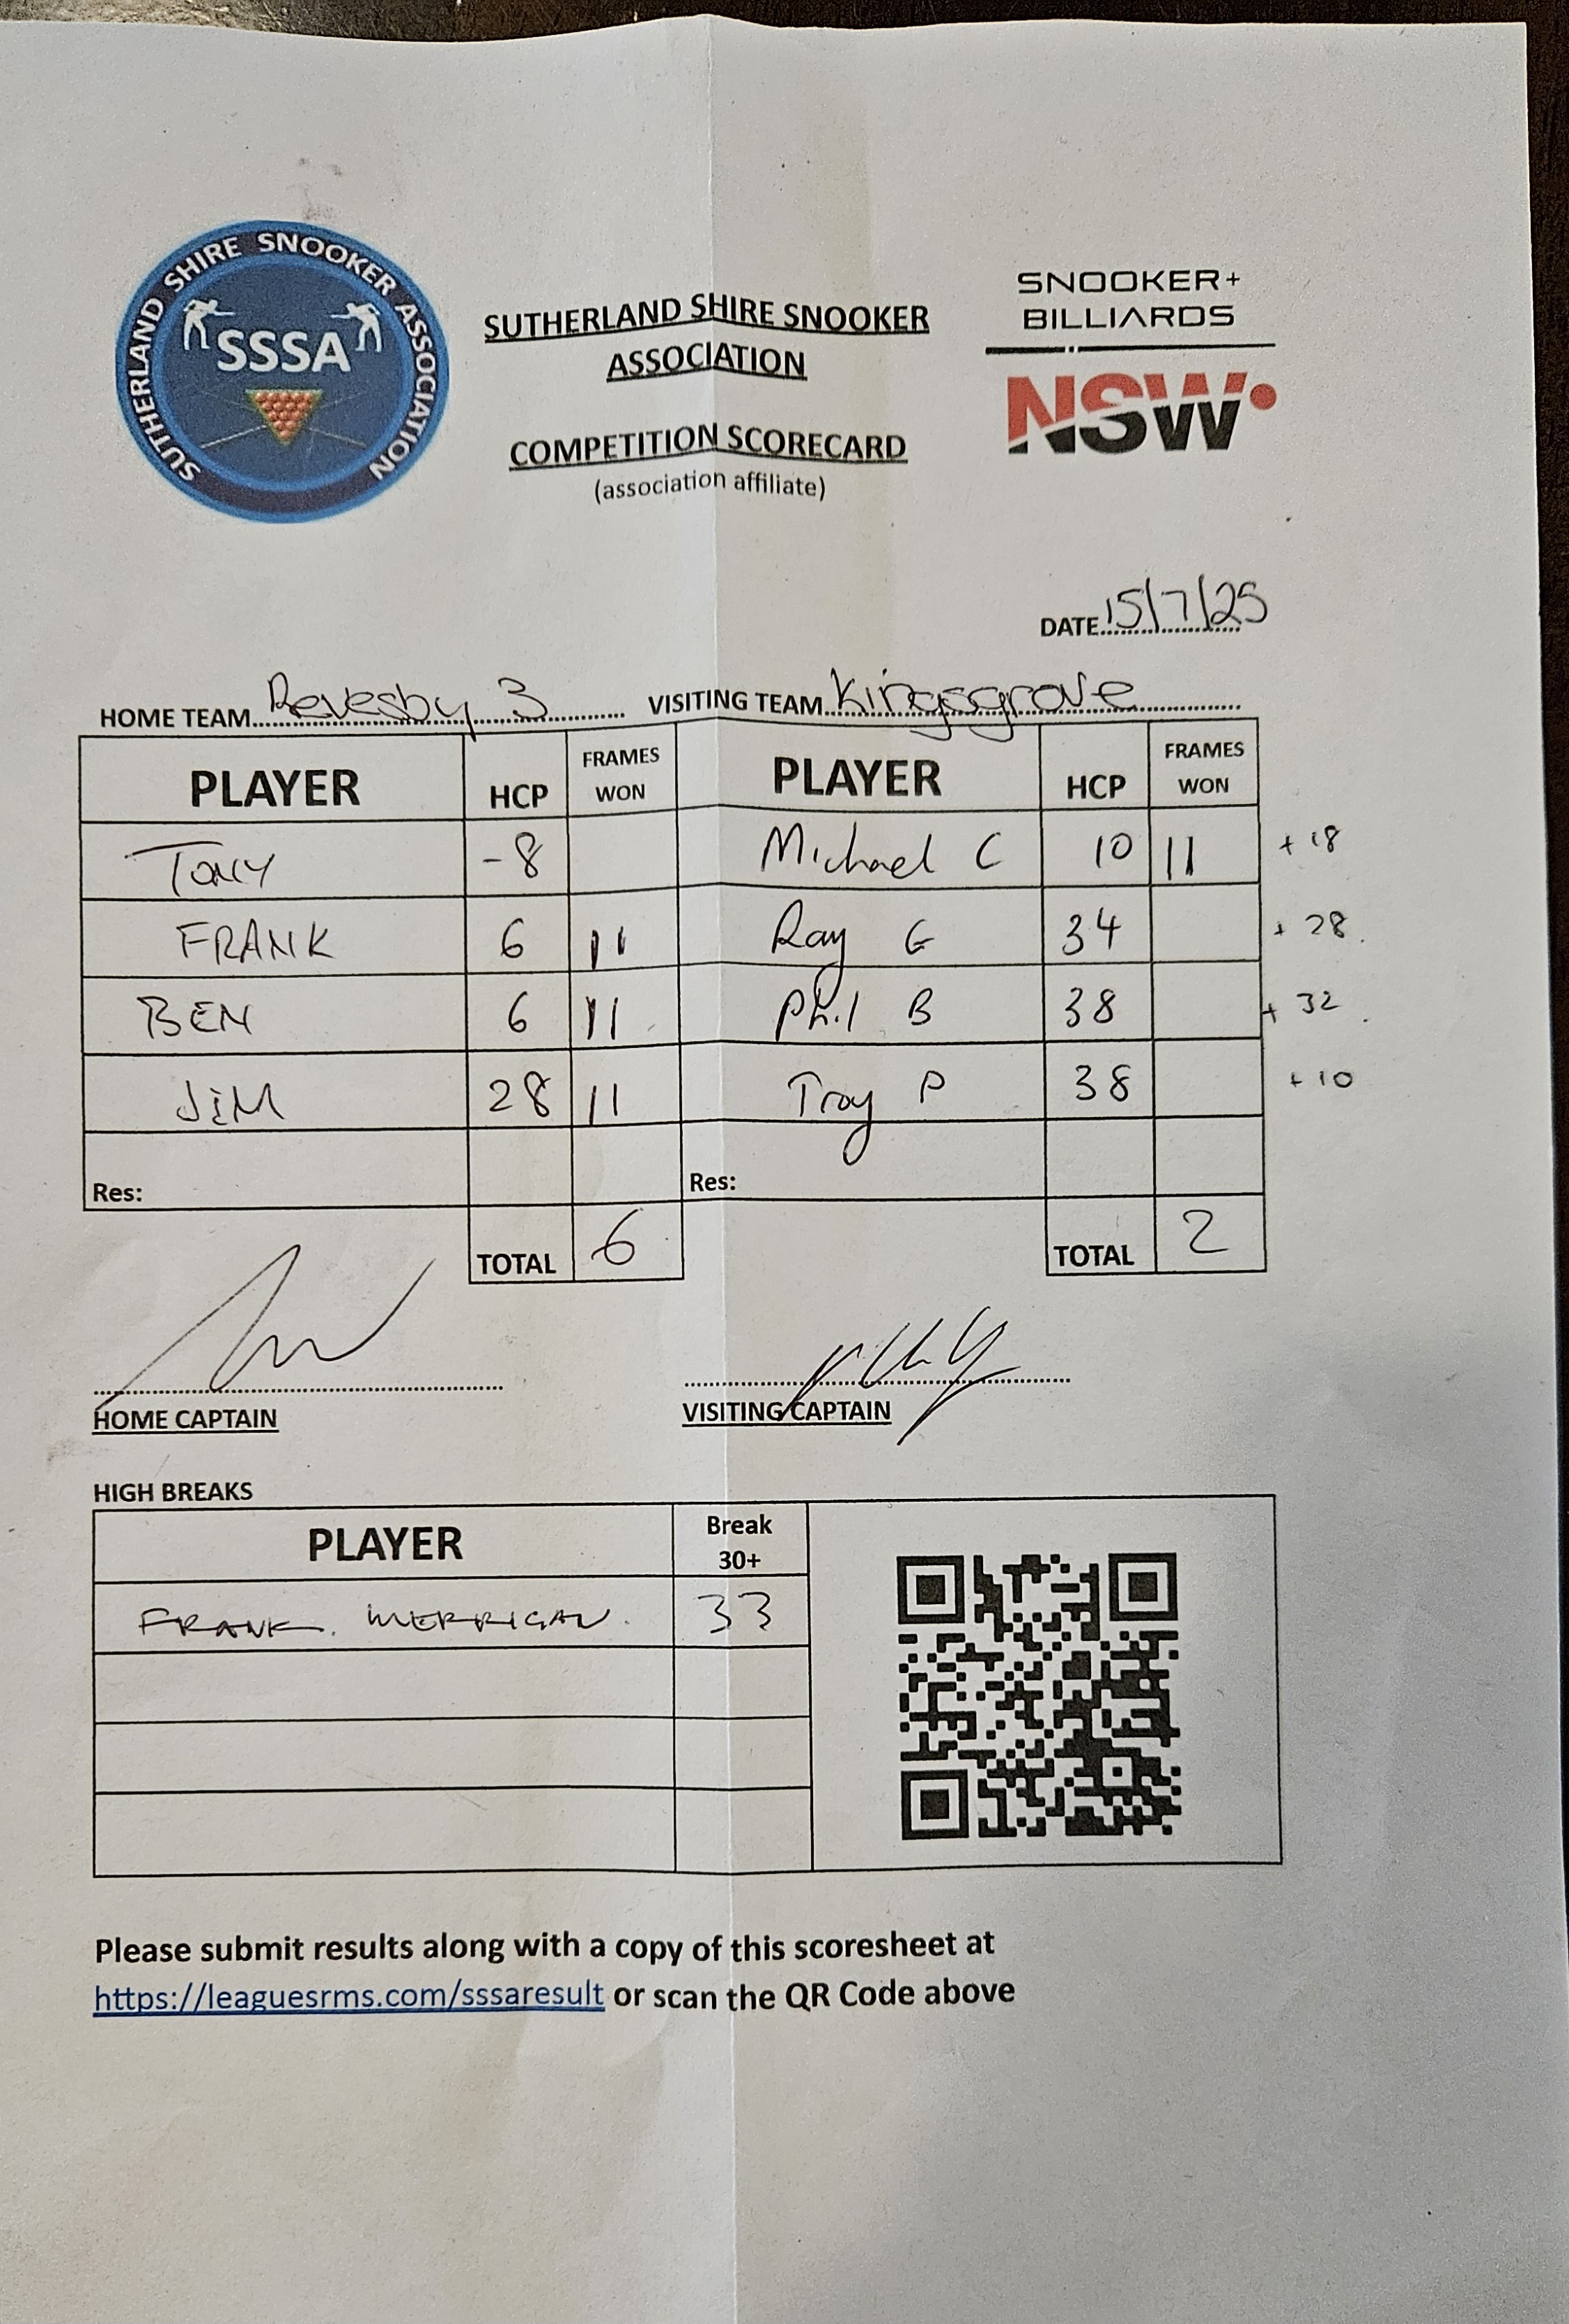 SUTHERLAND SHIRE SNOOKER ASSOCIATION
SSSA
SUTHERLAND SHIRE SNOOKER
ASSOCIATION
COMPETITION SCORECARD
(association affiliate)
SNOOKER+
BILLIARDS
NSW
DATE 15/7/25
HOME TEAM Revesby 3 VISITING TEAM Kingsgrove
PLAYER HCP FRAMES WON PLAYER HCP FRAMES WON
TONY -8 Michael C 10 11 +18
FRANK 6 11 Ray G 34 +28
BEN 6 11 Phil B 38 +32
JIM 28 11 Troy P 38 +10
Res: Res:
TOTAL 6 TOTAL 2
HOME CAPTAIN VISITING CAPTAIN
HIGH BREAKS
PLAYER Break 30+
FRANK. MERRIGAN. 33
Please submit results along with a copy of this scoresheet at
https://leaguesrms.com/sssaresult or scan the QR Code above